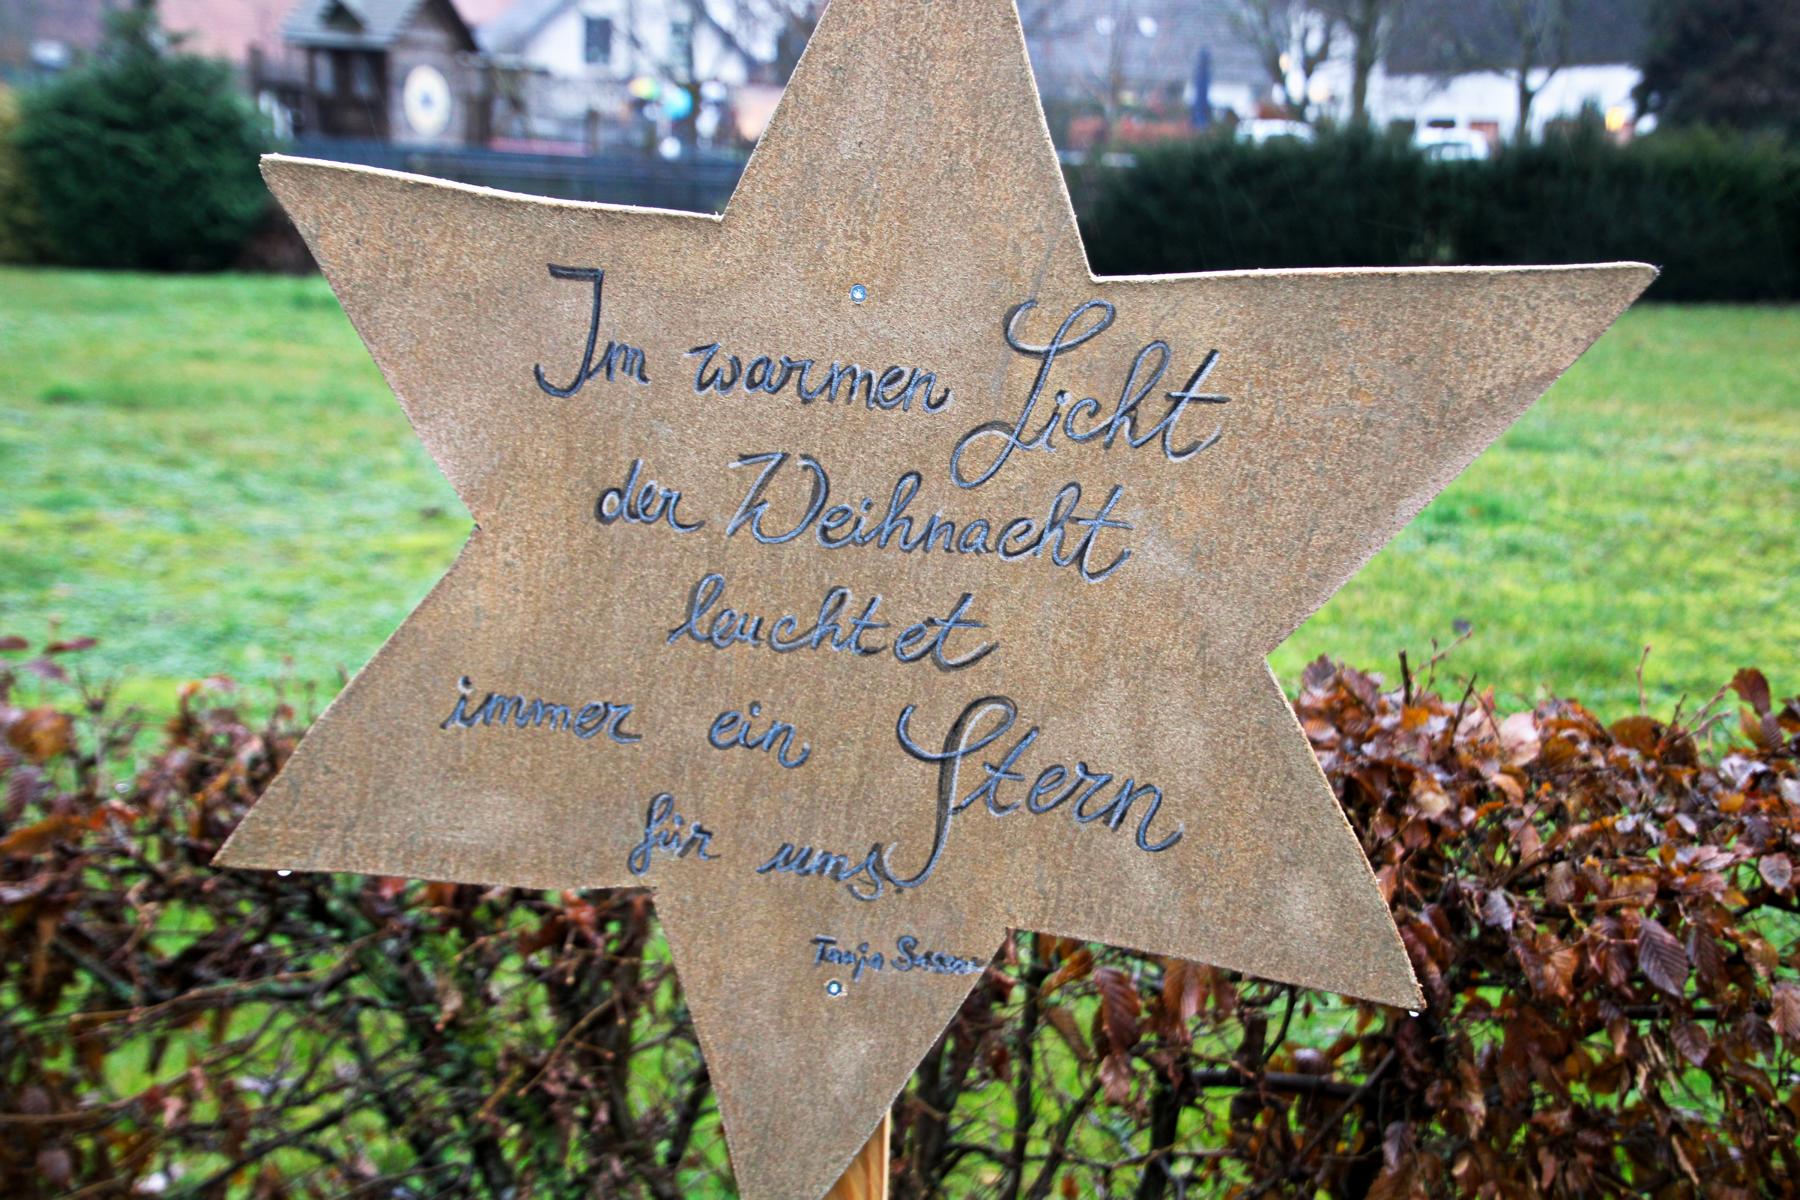 Im warmen Licht
der Weihnacht
leuchtet
immer ein Stern
für uns
Tanja